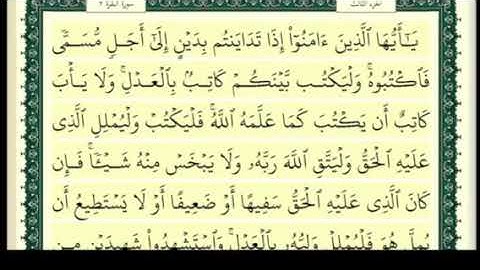 الجزء الثالث
سورة البقرة ٢
يَـٰٓأَيُّهَا ٱلَّذِينَ ءَامَنُوٓا۟ إِذَا تَدَايَنتُم بِدَيْنٍ إِلَىٰٓ أَجَلٍ مُّسَمًّى
فَٱكْتُبُوهُ ۚ وَلْيَكْتُب بَّيْنَكُمْ كَاتِبٌۢ بِٱلْعَدْلِ ۚ وَلَا يَأْبَ
كَاتِبٌ أَن يَكْتُبَ كَمَا عَلَّمَهُ ٱللَّهُ ۚ فَلْيَكْتُبْ وَلْيُمْلِلِ ٱلَّذِى
عَلَيْهِ ٱلْحَقُّ وَلْيَتَّقِ ٱللَّهَ رَبَّهُۥ وَلَا يَبْخَسْ مِنْهُ شَيْـًٔا ۚ فَإِن
كَانَ ٱلَّذِى عَلَيْهِ ٱلْحَقُّ سَفِيهًا أَوْ ضَعِيفًا أَوْ لَا يَسْتَطِيعُ أَن
يُمِلَّ هُوَ فَلْيُمْلِلْ وَلِيُّهُۥ بِٱلْعَدْلِ ۚ وَٱسْتَشْهِدُوا۟ شَهِيدَيْنِ مِن